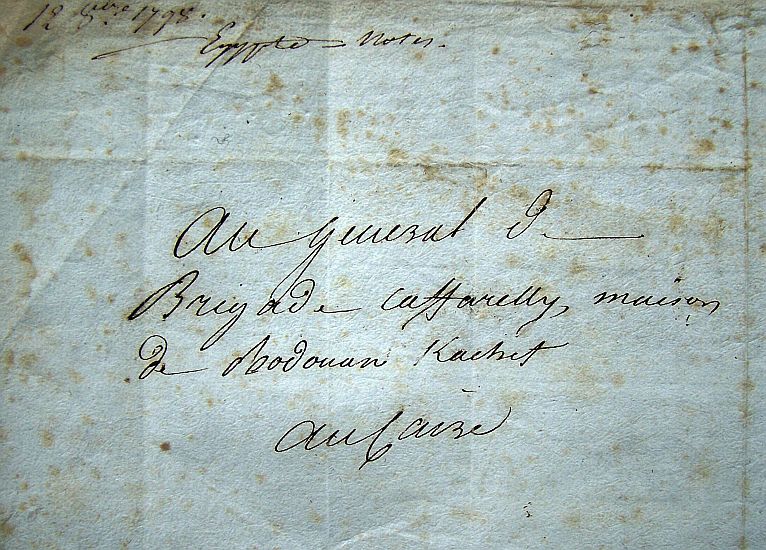 18 8bre 1798.
Egypte Notes.
Au général de
Brigade Caffarelly, maison
de Rodouan Kachef
au Caire